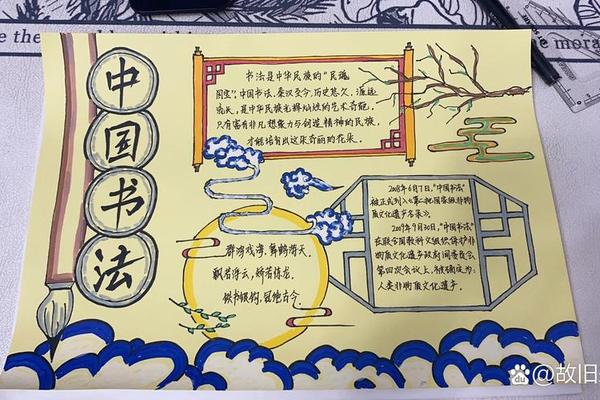 中国书法
书法是中华民族的"民魂
国宝"，中国书法，秦汉至今，历史悠久，源远
流长，是中华民族光辉灿烂的艺术奇葩。
只有富有非凡想象力与创造精神的民族，
才能培育出这朵奇丽的花朵。
2008年6月7日，"中国书法"
被正式列入《第二批国家级非物
质文化遗产名录》。
2009年9月30日，"中国书法"
在联合国教科文组织保护非
物质文化遗产政府间委员会
第四次会议上，被确定为：
人类非物质文化遗产。
群鸿戏海，舞鹤游天。
飘若浮云，矫若惊龙。
铁书银钩，冠绝古今。
e the
the mora
@故旧